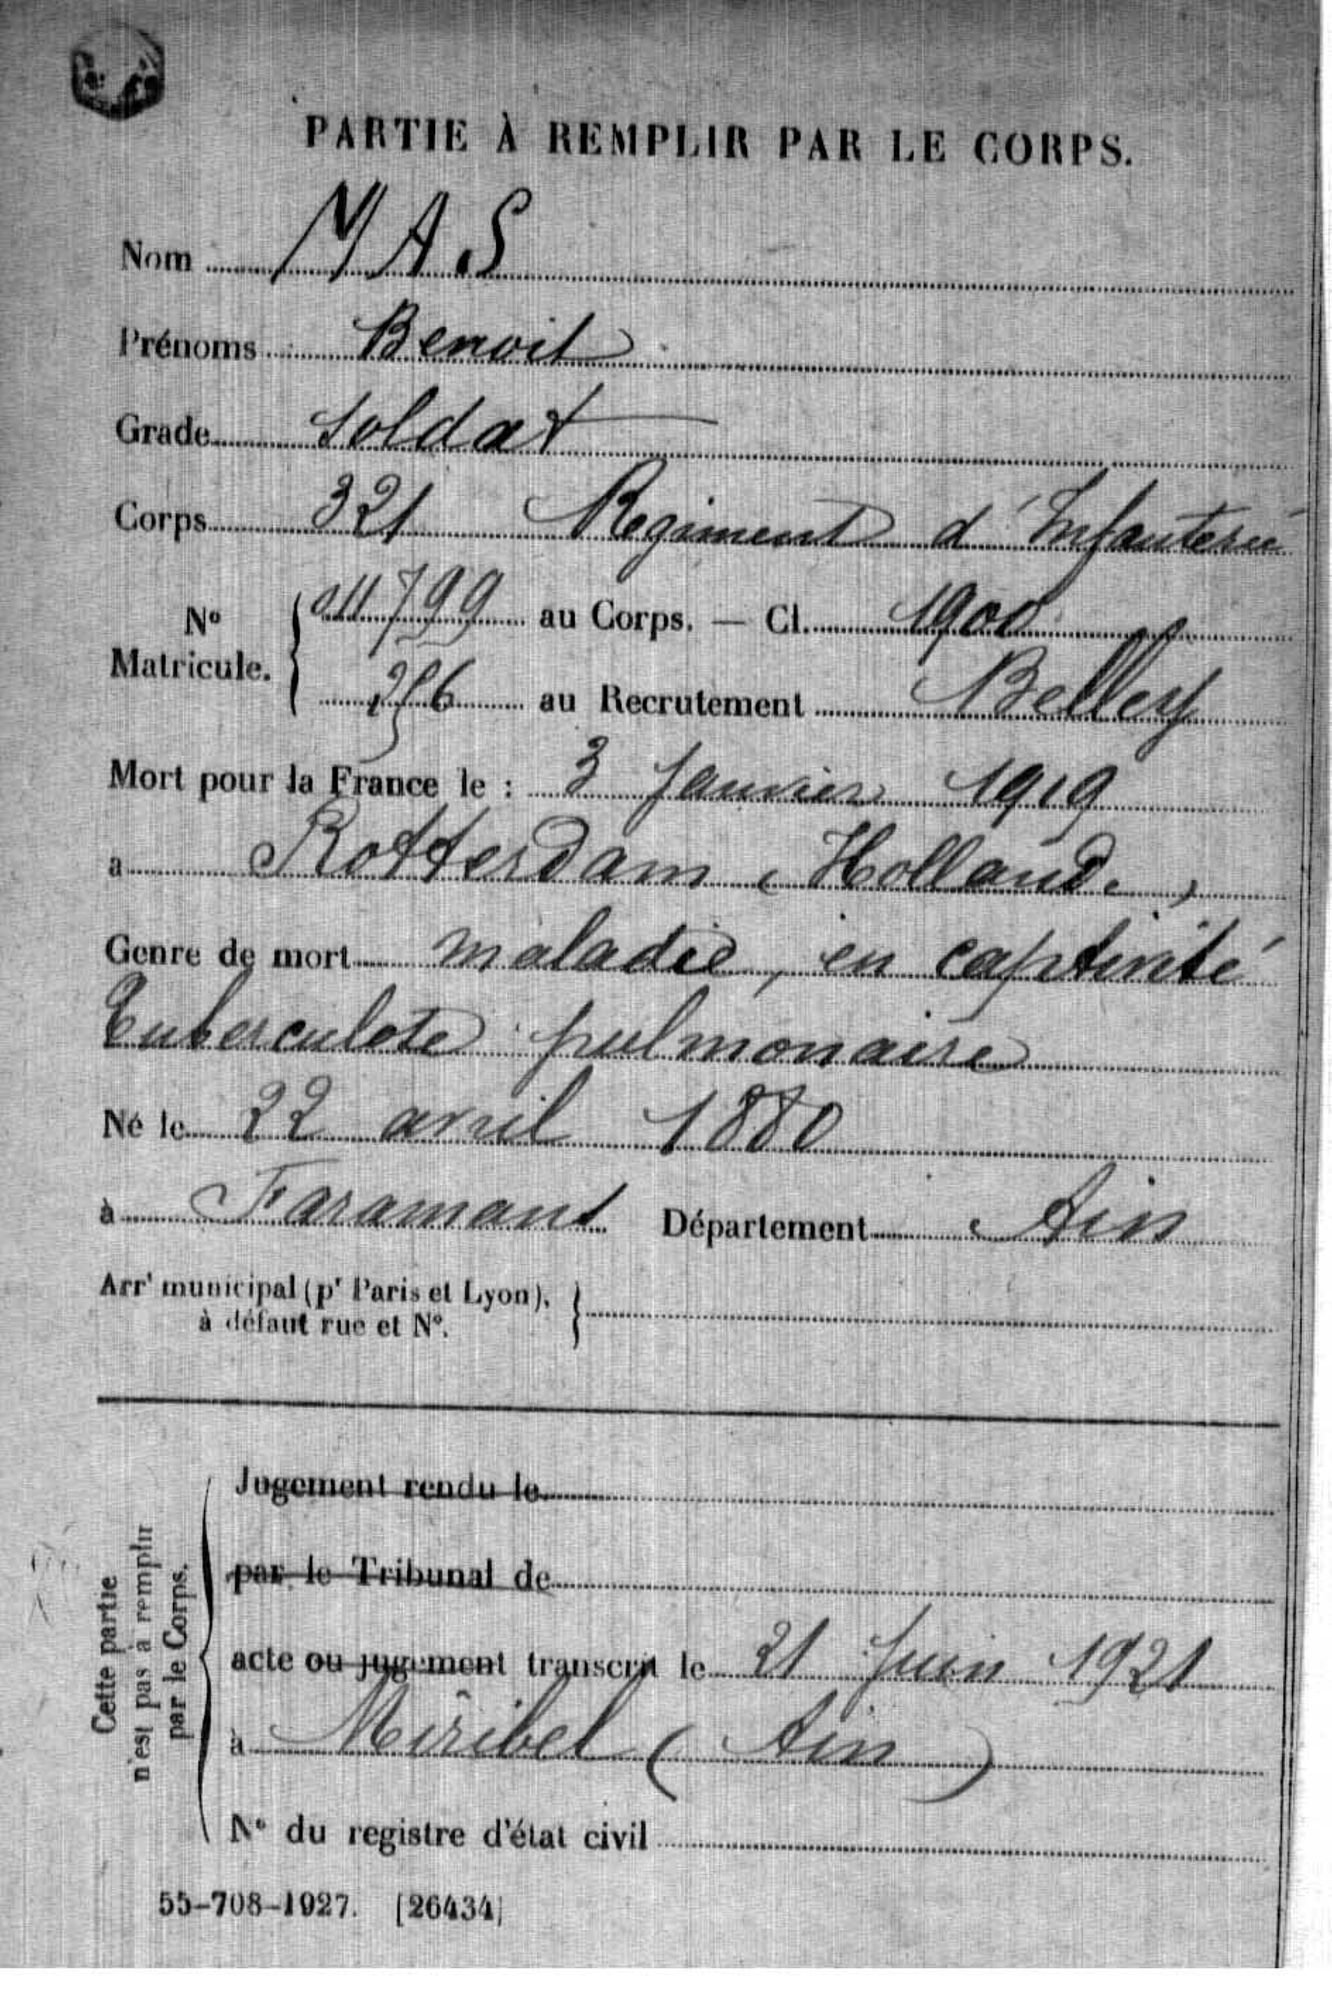 PARTIE À REMPLIR PAR LE CORPS.
Nom MAS
Prénoms Benoit
Grade Soldat
Corps 321 Regiment d'Infanterie
No Matricule. 011799 au Corps. — Cl. 1900
256 au Recrutement Belley
Mort pour la France le : 3 Janvier 1919
a Rotterdam (Hollande)
Genre de mort maladie, en captivité
Tuberculose pulmonaire
Né le 22 avril 1880
à Faramans Département Ain
Arrt municipal (pr Paris et Lyon), à défaut rue et No.
Jugement rendu le
par le Tribunal de
acte ou jugement transcrit le 21 Juin 1921
à Miribel (Ain)
No du registre d'état civil
Cette partie
n'est pas à remplir
par le Corps.
55-708-1927. [26434]